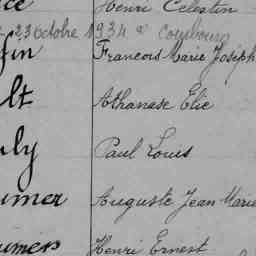 Henri Celestin
23 Octobre 1934 a Combourg
fin Francois Marie Joseph
lt Athanase Elie
uly Paul Louis
umer Auguste Jean Marie
umers Henri Ernest